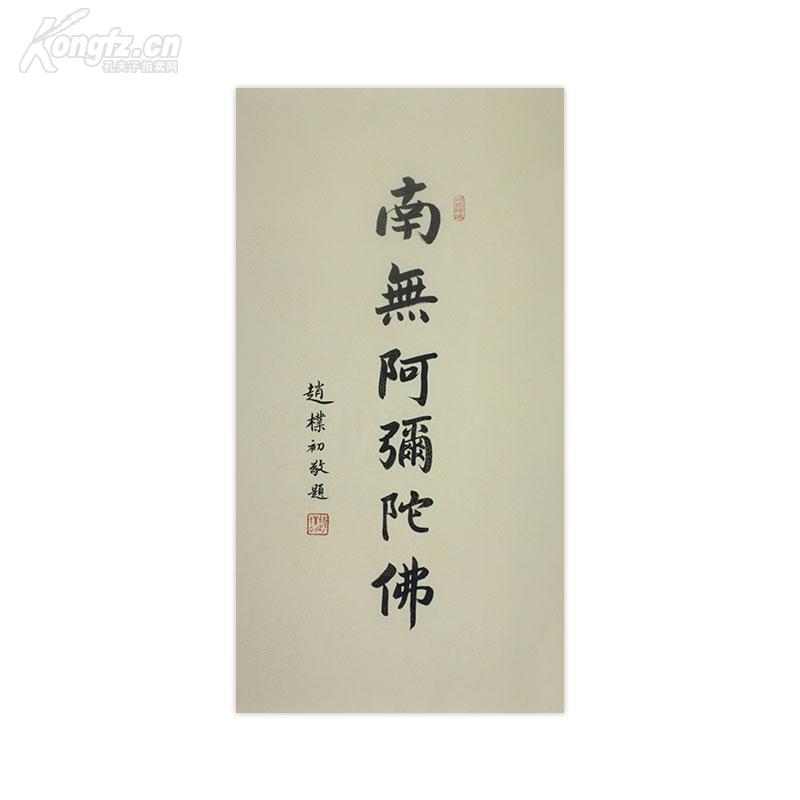 Kongfz.cn
孔夫子拍卖网
南無阿彌陀佛
趙樸初敬題